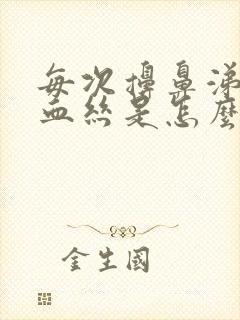 每次擤鼻涕
血丝是怎麼
金生國